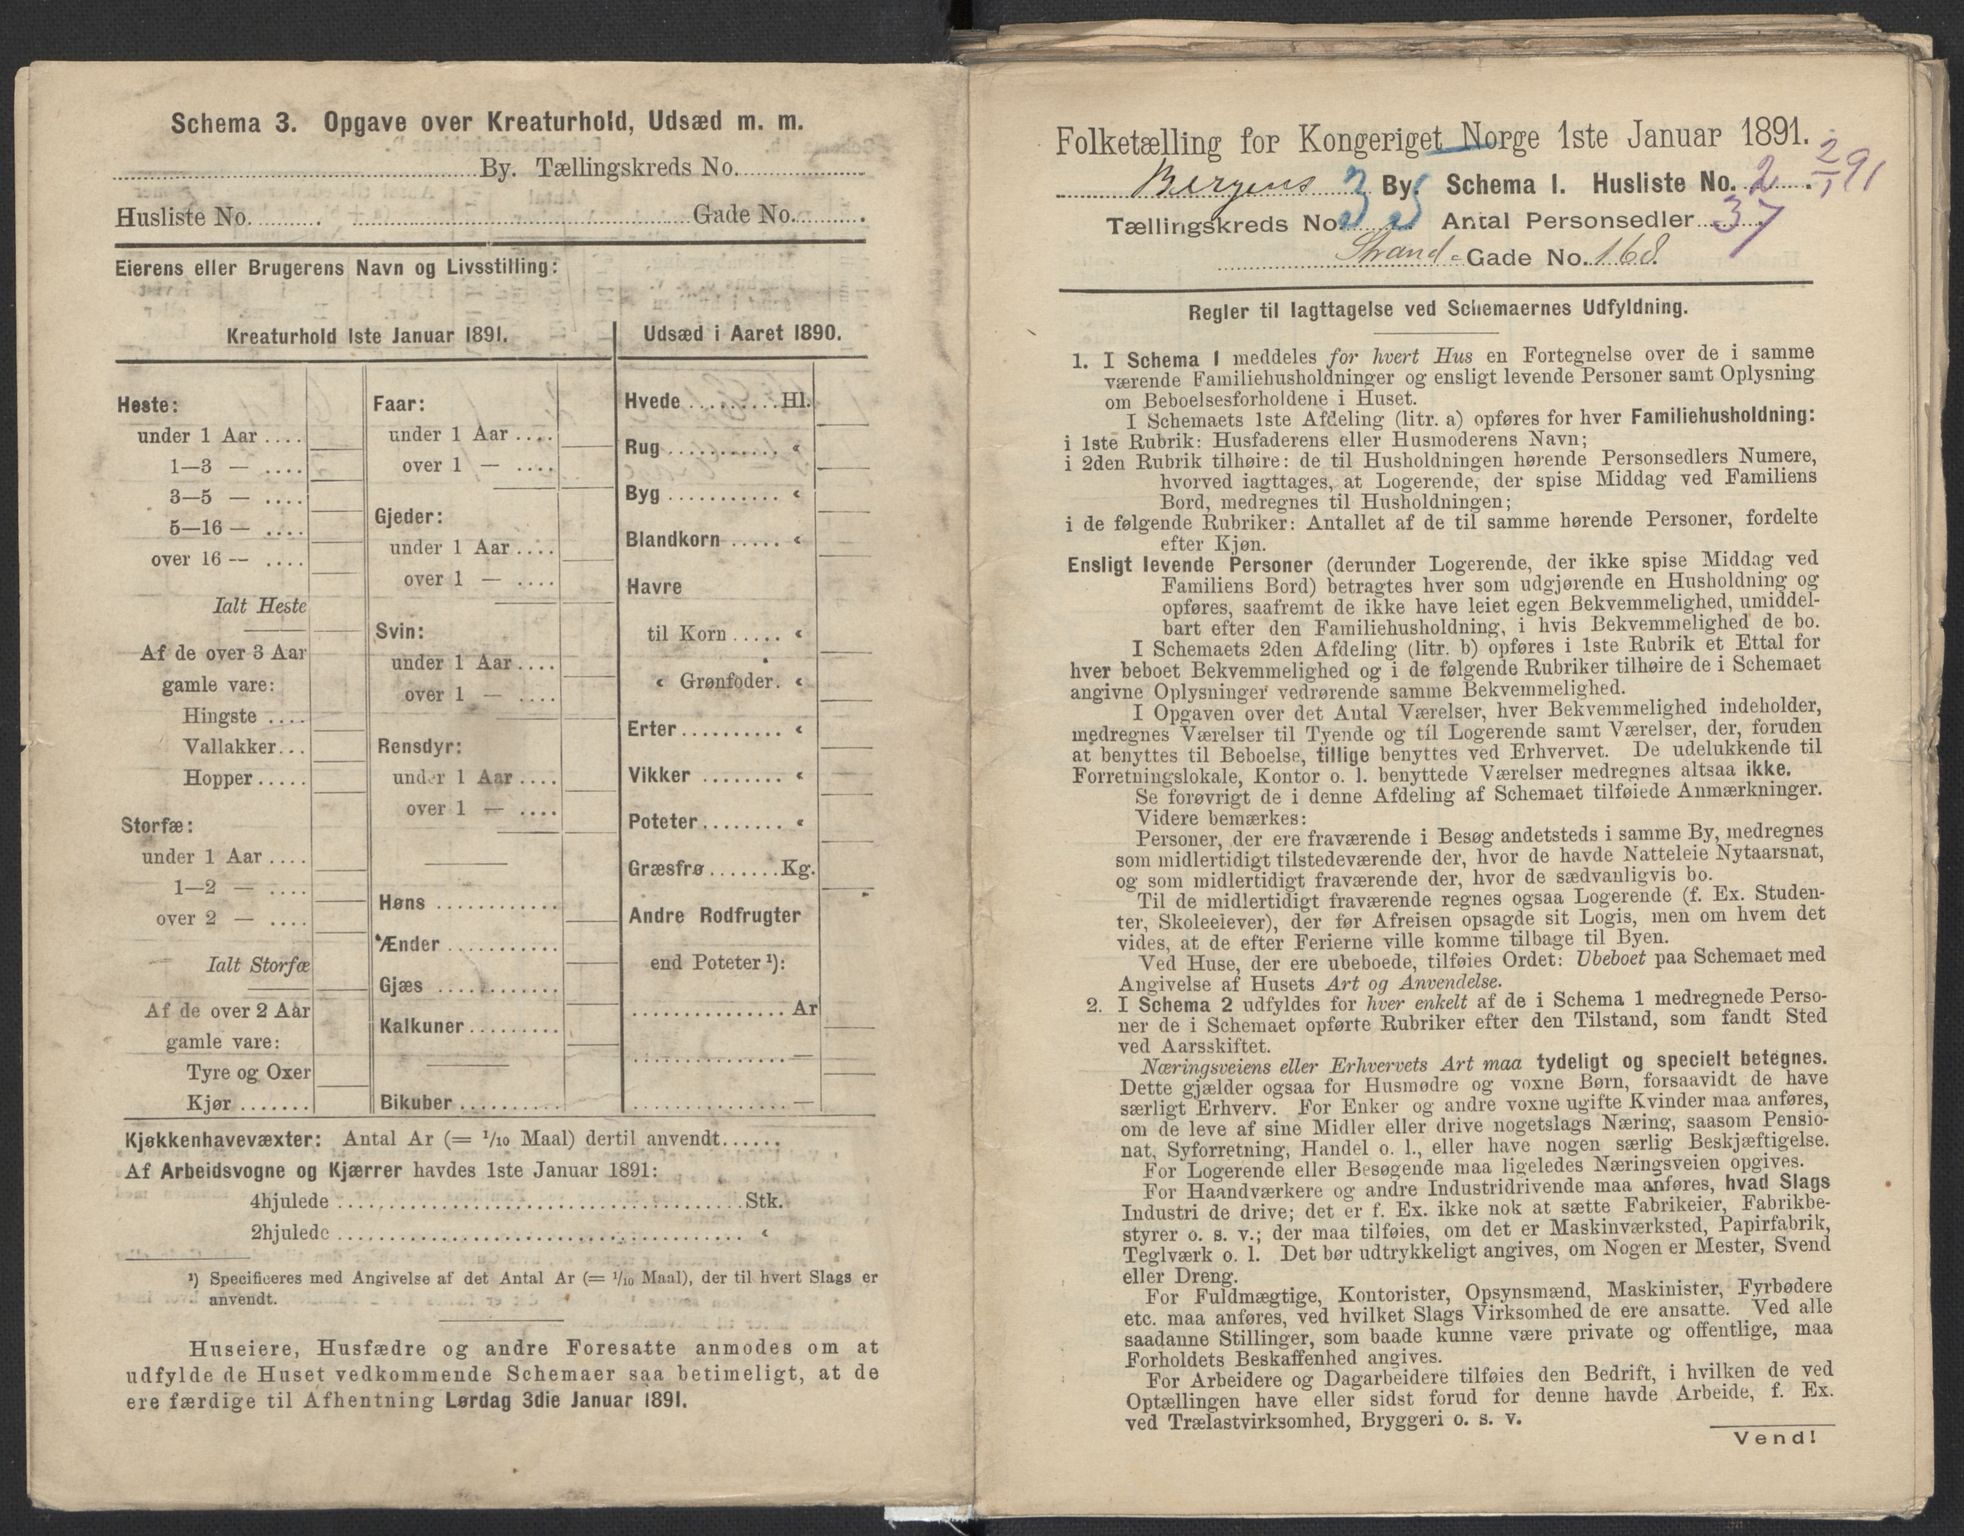 Schema 3. Opgave over Kreaturhold, Udsæd m. m.
By. Tællingskreds No.
Husliste No. Gade No.
Eierens eller Brugerens Navn og Livsstilling:
Kreaturhold 1ste Januar 1891.
Heste:
under 1 Aar
1—3 —
3—5 —
5—16 —
over 16 —
Ialt Heste
Af de over 3 Aar
gamle vare:
Hingste
Vallakker
Hopper
Storfæ:
under 1 Aar
1—2 —
over 2 —
Ialt Storfæ
Af de over 2 Aar
gamle vare:
Tyre og Oxer
Kjør
Faar:
under 1 Aar
over 1 —
Gjeder:
under 1 Aar
over 1 —
Svin:
under 1 Aar
over 1 —
Rensdyr:
under 1 Aar
over 1 —
Høns
Ænder
Gjæs
Kalkuner
Bikuber
Udsæd i Aaret 1890.
Hvede Hl.
Rug «
Byg «
Blandkorn «
Havre
til Korn «
« Grønfoder «
Erter «
Vikker «
Poteter «
Græsfrø Kg.
Andre Rodfrugter
end Poteter ¹):
Ar
—
—
Kjøkkenhavevæxter: Antal Ar (= 1/10 Maal) dertil anvendt
Af Arbeidsvogne og Kjærrer havdes 1ste Januar 1891:
4hjulede Stk.
2hjulede «
¹) Specificeres med Angivelse af det Antal Ar (= 1/10 Maal), der til hvert Slags er
anvendt.
Huseiere, Husfædre og andre Foresatte anmodes om at
udfylde de Huset vedkommende Schemaer saa betimeligt, at de
ere færdige til Afhentning Lørdag 3die Januar 1891.
Folketælling for Kongeriget Norge 1ste Januar 1891.
Bergens By. Schema I. Husliste No. 2. 2/1 91
Tællingskreds No. 35 Antal Personsedler 37
Strand-Gade No. 168.
Regler til Iagttagelse ved Schemaernes Udfyldning.
1. I Schema 1 meddeles for hvert Hus en Fortegnelse over de i samme
værende Familiehusholdninger og ensligt levende Personer samt Oplysning
om Beboelsesforholdene i Huset.
I Schemaets 1ste Afdeling (litr. a) opføres for hver Familiehusholdning:
i 1ste Rubrik: Husfaderens eller Husmoderens Navn;
i 2den Rubrik tilhøire: de til Husholdningen hørende Personsedlers Numere,
hvorved iagttages, at Logerende, der spise Middag ved Familiens
Bord, medregnes til Husholdningen;
i de følgende Rubriker: Antallet af de til samme hørende Personer, fordelte
efter Kjøn.
Ensligt levende Personer (derunder Logerende, der ikke spise Middag ved
Familiens Bord) betragtes hver som udgjørende en Husholdning og
opføres, saafremt de ikke have leiet egen Bekvemmelighed, umiddel-
bart efter den Familiehusholdning, i hvis Bekvemmelighed de bo.
I Schemaets 2den Afdeling (litr. b) opføres i 1ste Rubrik et Ettal for
hver beboet Bekvemmelighed og i de følgende Rubriker tilhøire de i Schemaet
angivne Oplysninger vedrørende samme Bekvemmelighed.
I Opgaven over det Antal Værelser, hver Bekvemmelighed indeholder,
medregnes Værelser til Tyende og til Logerende samt Værelser, der, foruden
at benyttes til Beboelse, tillige benyttes ved Erhvervet. De udelukkende til
Forretningslokale, Kontor o. l. benyttede Værelser medregnes altsaa ikke.
Se forøvrigt de i denne Afdeling af Schemaet tilføiede Anmærkninger.
Videre bemærkes:
Personer, der ere fraværende i Besøg andetsteds i samme By, medregnes
som midlertidigt tilstedeværende der, hvor de havde Natteleie Nytaarsnat,
og som midlertidigt fraværende der, hvor de sædvanligvis bo.
Til de midlertidigt fraværende regnes ogsaa Logerende (f. Ex. Studen-
ter, Skoleelever), der før Afreisen opsagde sit Logis, men om hvem det
vides, at de efter Ferierne ville komme tilbage til Byen.
Ved Huse, der ere ubeboede, tilføies Ordet: Ubeboet paa Schemaet med
Angivelse af Husets Art og Anvendelse.
2. I Schema 2 udfyldes for hver enkelt af de i Schema 1 medregnede Perso-
ner de i Schemaet opførte Rubriker efter den Tilstand, som fandt Sted
ved Aarsskiftet.
Næringsveiens eller Erhvervets Art maa tydeligt og specielt betegnes.
Dette gjælder ogsaa for Husmødre og voxne Børn, forsaavidt de have
særligt Erhverv. For Enker og andre voxne ugifte Kvinder maa anføres,
om de leve af sine Midler eller drive nogetslags Næring, saasom Pensio-
nat, Syforretning, Handel o. l., eller have nogen særlig Beskjæftigelse.
For Logerende eller Besøgende maa ligeledes Næringsveien opgives.
For Haandværkere og andre Industridrivende maa anføres, hvad Slags
Industri de drive; det er f. Ex. ikke nok at sætte Fabrikeier, Fabrikbe-
styrer o. s. v.; der maa tilføies, om det er Maskinværksted, Papirfabrik,
Teglværk o. l. Det bør udtrykkeligt angives, om Nogen er Mester, Svend
eller Dreng.
For Fuldmægtige, Kontorister, Opsynsmænd, Maskinister, Fyrbødere
etc. maa anføres, ved hvilket Slags Virksomhed de ere ansatte. Ved alle
saadanne Stillinger, som baade kunne være private og offentlige, maa
Forholdets Beskaffenhed angives.
For Arbeidere og Dagarbeidere tilføies den Bedrift, i hvilken de ved
Optællingen have eller sidst forud for denne havde Arbeide, f. Ex.
ved Trælastvirksomhed, Bryggeri o. s. v.
Vend!